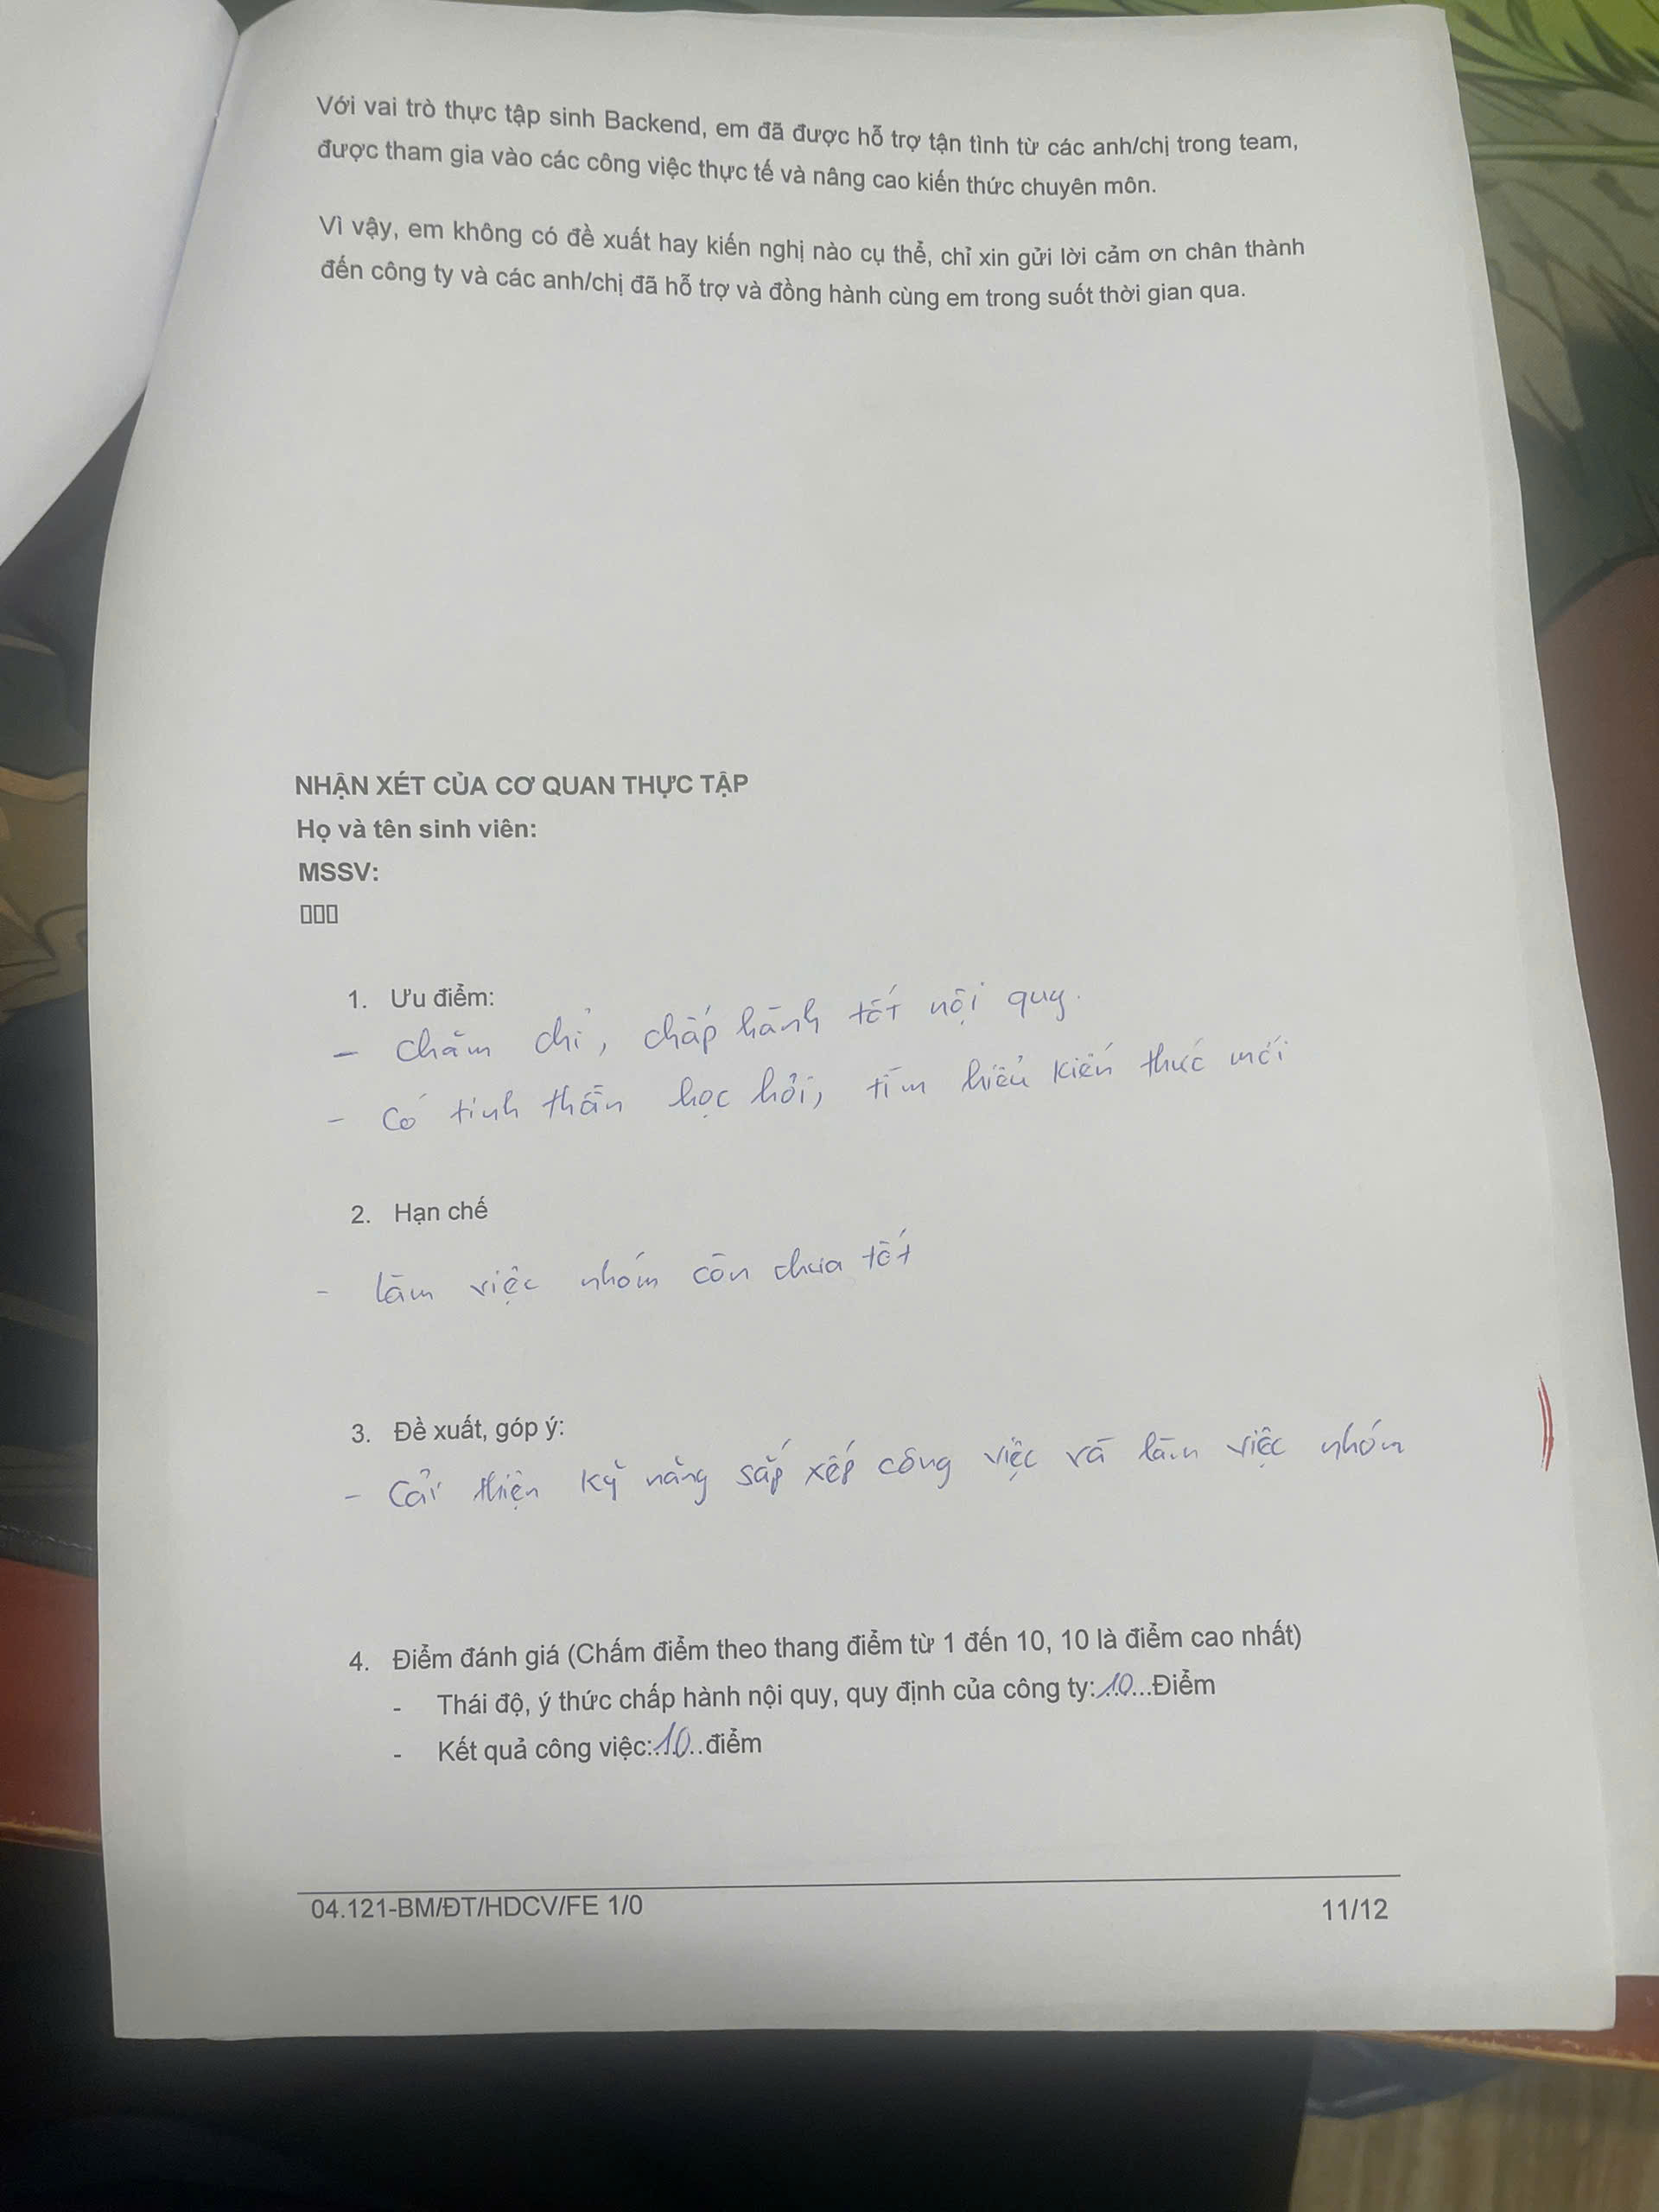 Với vai trò thực tập sinh Backend, em đã được hỗ trợ tận tình từ các anh/chị trong team,
được tham gia vào các công việc thực tế và nâng cao kiến thức chuyên môn.
Vì vậy, em không có đề xuất hay kiến nghị nào cụ thể, chỉ xin gửi lời cảm ơn chân thành
đến công ty và các anh/chị đã hỗ trợ và đồng hành cùng em trong suốt thời gian qua.
NHẬN XÉT CỦA CƠ QUAN THỰC TẬP
Họ và tên sinh viên:
MSSV:
▯▯▯
1. Ưu điểm:
- Chăm chỉ, chấp hành tốt nội quy.
- Có tinh thần học hỏi, tìm hiểu kiến thức mới
2. Hạn chế
- làm việc nhóm còn chưa tốt
3. Đề xuất, góp ý:
- Cải thiện kỹ năng sắp xếp công việc và làm việc nhóm
4. Điểm đánh giá (Chấm điểm theo thang điểm từ 1 đến 10, 10 là điểm cao nhất)
- Thái độ, ý thức chấp hành nội quy, quy định của công ty:.10...Điểm
- Kết quả công việc:.10..điểm
04.121-BM/ĐT/HDCV/FE 1/0 11/12